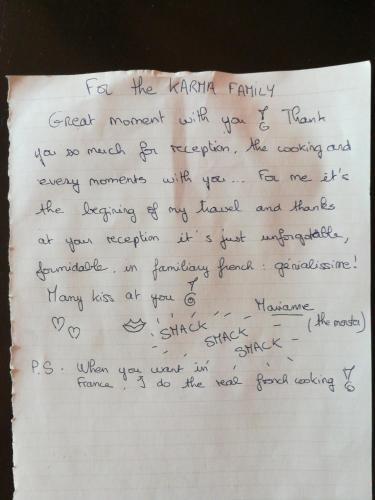 For the KARMA FAMILY
Great moment with you ! Thank
you so much for reception, the cooking and
every moments with you... For me it's
the begining of my travel and thanks
at your reception it's just unforgotable,
formidable, in familiary french : génialissime!
Many kiss at you !
Marianne
(the monster)
SMACK
SMACK
SMACK
P.S. When you want in
France, I do the real french cooking !